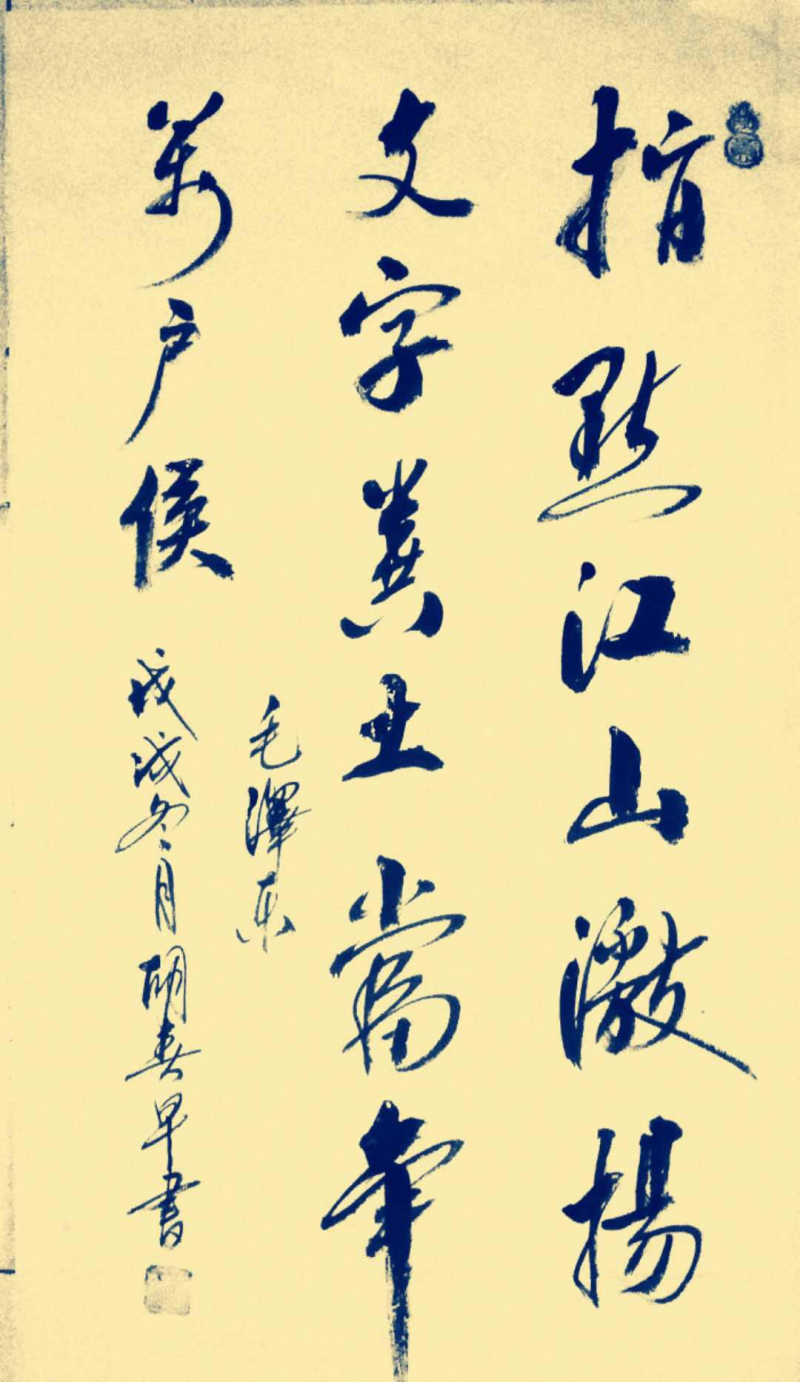 指點江山激揚
文字糞土當年
萬户侯
毛澤东
戊戌冬月胡真早書